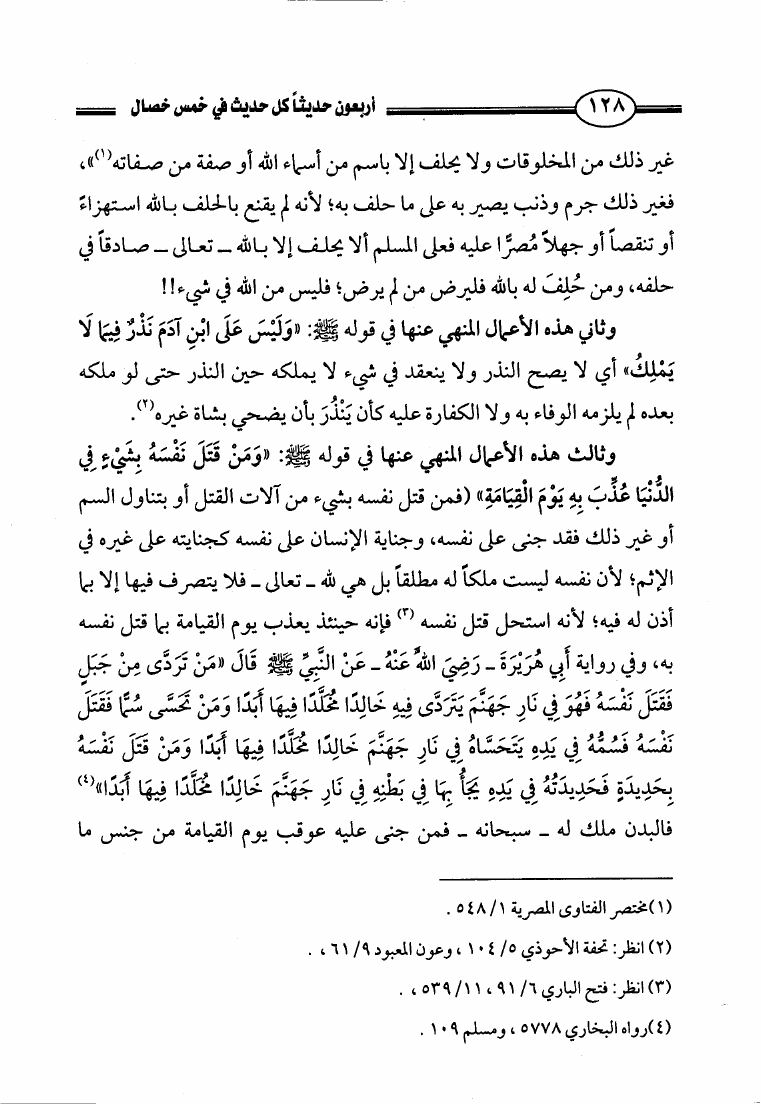 ١٢٨
أربعون حديثاً كل حديث في خمس خصال
غير ذلك من المخلوقات ولا يحلف إلا باسم من أسماء الله أو صفة من صفاته(١)»،
فغير ذلك جرم وذنب يصير به على ما حلف به؛ لأنه لم يقنع بالحلف بالله استهزاءً
أو تنقصاً أو جهلاً مُصرًّا عليه فعلى المسلم ألا يحلف إلا بالله – تعالى – صادقاً في
حلفه، ومن حُلِفَ له بالله فليرض من لم يرض؛ فليس من الله في شيء!!
وثاني هذه الأعمال المنهي عنها في قوله ﷺ: «وَلَيْسَ عَلَى ابْنِ آدَمَ نَذْرٌ فِيمَا لَا
يَمْلِكُ» أي لا يصح النذر ولا ينعقد في شيء لا يملكه حين النذر حتى لو ملكه
بعده لم يلزمه الوفاء به ولا الكفارة عليه كأن يَنْذُرَ بأن يضحي بشاة غيره(٢).
وثالث هذه الأعمال المنهي عنها في قوله ﷺ: «وَمَنْ قَتَلَ نَفْسَهُ بِشَيْءٍ فِي
الدُّنْيَا عُذِّبَ بِهِ يَوْمَ الْقِيَامَةِ» (فمن قتل نفسه بشيء من آلات القتل أو بتناول السم
أو غير ذلك فقد جنى على نفسه، وجناية الإنسان على نفسه كجنايته على غيره في
الإثم؛ لأن نفسه ليست ملكاً له مطلقاً بل هي لله – تعالى – فلا يتصرف فيها إلا بما
أذن له فيه؛ لأنه استحل قتل نفسه (٣) فإنه حينئذ يعذب يوم القيامة بما قتل نفسه
به، وفي رواية أَبِي هُرَيْرَةَ – رَضِيَ اللهُ عَنْهُ – عَنْ النَّبِيِّ ﷺ قَالَ «مَنْ تَرَدَّى مِنْ جَبَلٍ
فَقَتَلَ نَفْسَهُ فَهُوَ فِي نَارِ جَهَنَّمَ يَتَرَدَّى فِيهِ خَالِدًا مُخَلَّدًا فِيهَا أَبَدًا وَمَنْ تَحَسَّى سُمًّا فَقَتَلَ
نَفْسَهُ فَسُمُّهُ فِي يَدِهِ يَتَحَسَّاهُ فِي نَارِ جَهَنَّمَ خَالِدًا مُخَلَّدًا فِيهَا أَبَدًا وَمَنْ قَتَلَ نَفْسَهُ
بِحَدِيدَةٍ فَحَدِيدَتُهُ فِي يَدِهِ يَجَأُ بِهَا فِي بَطْنِهِ فِي نَارِ جَهَنَّمَ خَالِدًا مُخَلَّدًا فِيهَا أَبَدًا»(٤)
فالبدن ملك له – سبحانه – فمن جنى عليه عوقب يوم القيامة من جنس ما
(١) مختصر الفتاوى المصرية ١/ ٥٤٨ .
(٢) انظر: تحفة الأحوذي ٥/ ١٠٤ ، وعون المعبود ٩/ ٦١ ، .
(٣) انظر: فتح الباري ٦/ ٩١ ، ١١/ ٥٣٩ ، .
(٤) رواه البخاري ٥٧٧٨ ، ومسلم ١٠٩ .